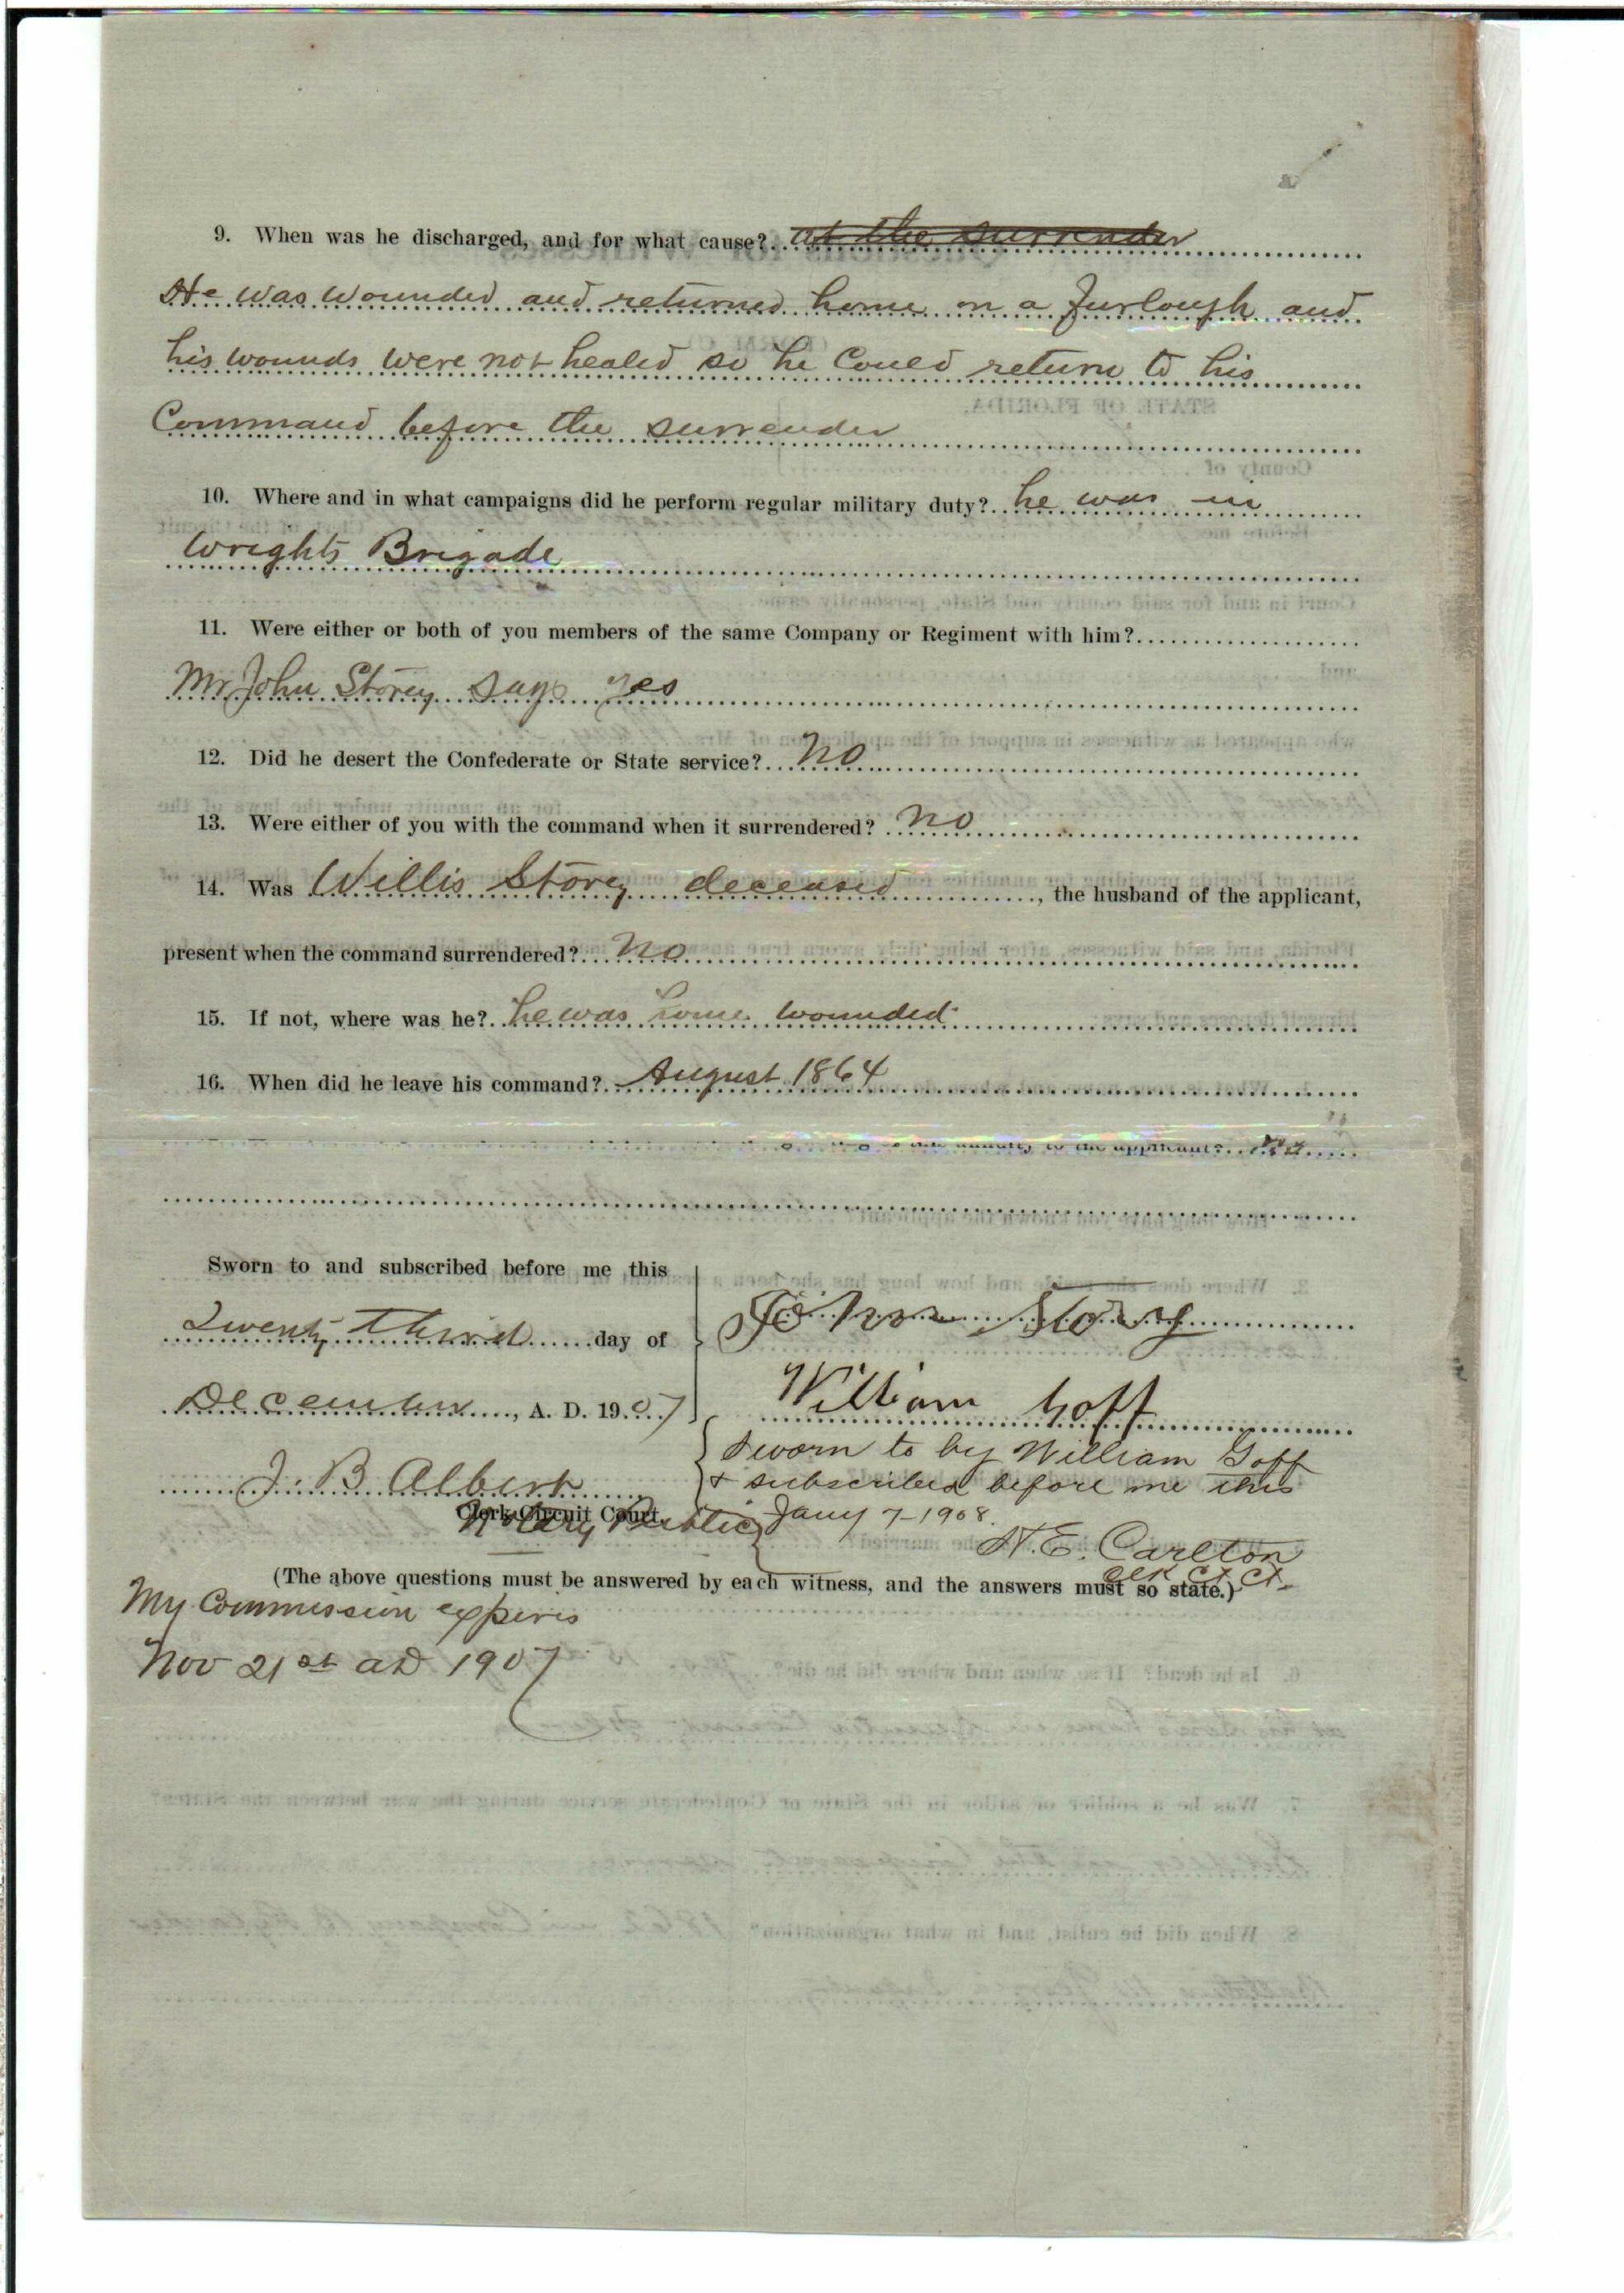 9. When was he discharged, and for what cause? at the surrender
He was wounded and returned home on a furlough and
his wounds were not healed so he Could return to his
Command before the surrender
10. Where and in what campaigns did he perform regular military duty? he was in
Wrights Brigade
11. Were either or both of you members of the same Company or Regiment with him?
Mr John Storey says yes
12. Did he desert the Confederate or State service? No
13. Were either of you with the command when it surrendered? No
14. Was Willis Storey deceased, the husband of the applicant,
present when the command surrendered? No
15. If not, where was he? he was home wounded
16. When did he leave his command? August 1864
to the applicant?
Sworn to and subscribed before me this
Twenty third day of
John Story
December, A. D. 1907
William Goff
J. B Albert
Clerk Circuit Court.
Notary Public
Sworn to by William Goff
& subscribed before me this
Jany 7-1908.
H. E. Carlton
Clk Ct Ct.
(The above questions must be answered by each witness, and the answers must so state.)
My Commission expires
Nov 21st AD 1907